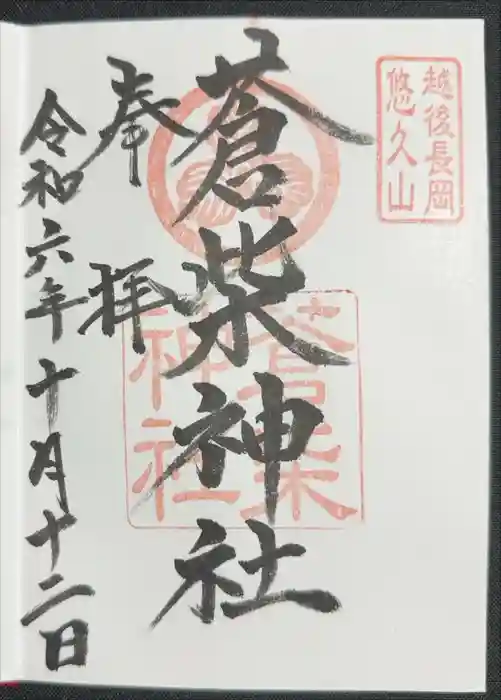 越後長岡
悠久山
蒼柴神社
蒼柴
神社
奉拝
令和六年十月十二日